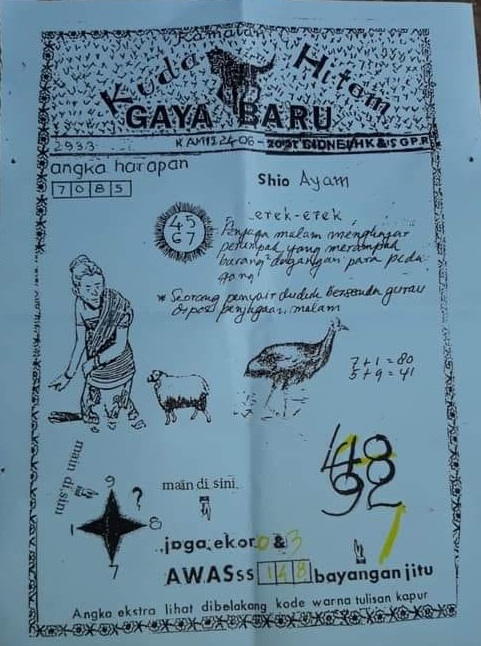 Ramalan
Kuda Hitam
GAYA BARU
2933
KAMIS 24-06-2021 SIDNEY HK & SGP.P
angka harapan
7085
Shio Ayam
erek-erek
45
67
Penjaga malam menghajar
perampok yang merampok
barang dagangan para peda
gang
* Seorang penyair duduk bersenda gurau
di pos penjagaan malam
7+1=80
5+9=41
48
92
main disini
9
?
1
8
7
main di sini
jaga ekor 0 & 3
AWASss 148 bayangan jitu
Angka ekstra lihat dibelakang kode warna tulisan kapur